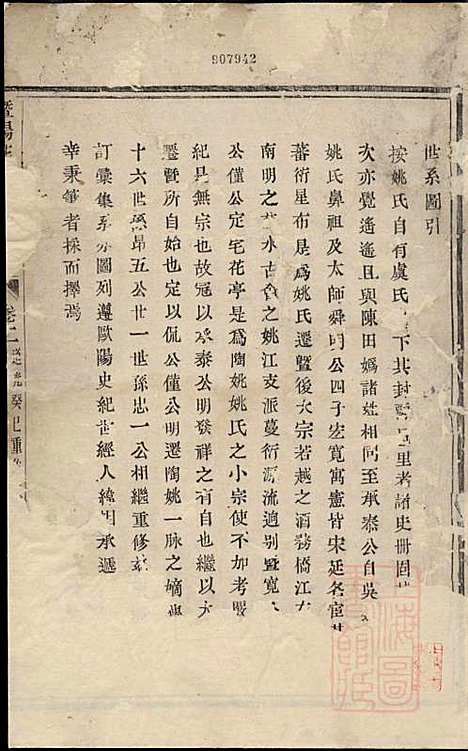 907942
世系圖引
按姚氏自有虞氏下其封里者諸史冊固
次亦覺遙遙且與陳田嬀諸姓相同至承泰公自吳
姚氏鼻祖及太師舜明公四子宏寬寓憲皆宋延各宦
蕃衍星布是爲姚氏遷暨後大宗若越之酒務橋江
南明之水古之姚江支派蔓衍源流適別暨寬
公僅公定宅花亭是爲陶姚姚氏之小宗使不加考
紀是無宗也故冠以承泰公明發祥之有自也繼以
遷暨所自始也定以侃公僅公明遷陶姚一脉之嫡
十六世孫昂五公廿一世孫忠一公相繼重修
訂彙集系圖列遵歐陽史紀世經人緯明承遞
幸秉筆者採而擇焉
暨陽
卷二
癸巳重